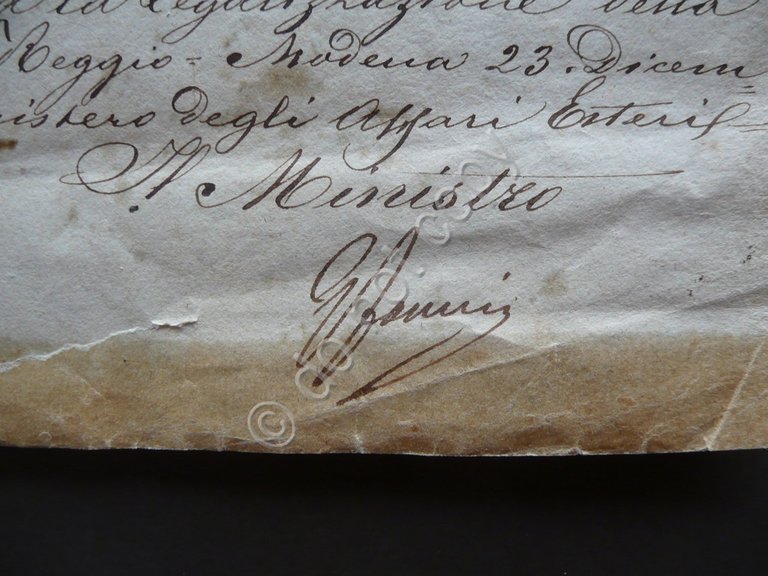 la legalizzazione della
Reggio = Modena 23. Dicem=
nistero degli Affari Esteri =
Il Ministro